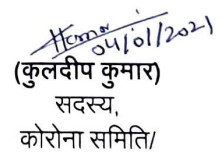 04/01/2021
(कुलदीप कुमार)
सदस्य,
कोरोना समिति/